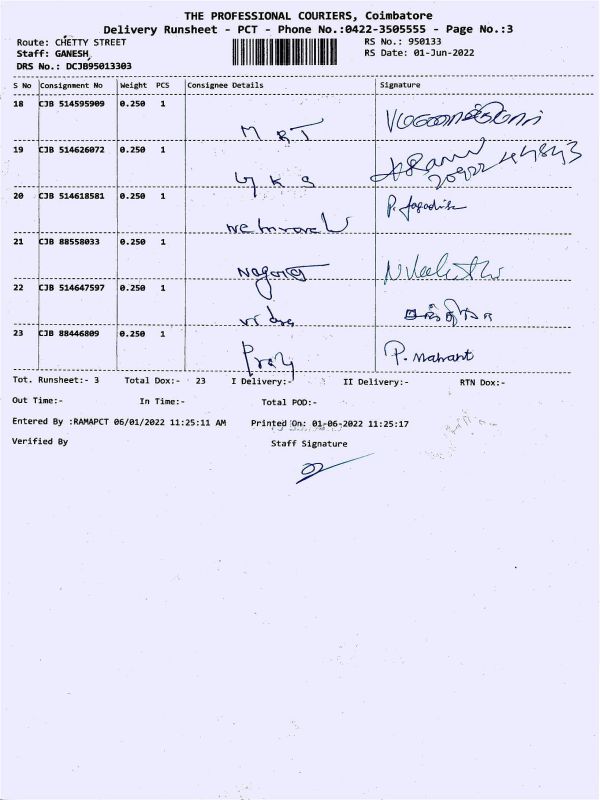 THE PROFESSIONAL COURIERS, Coimbatore
Delivery Runsheet - PCT - Phone No.:0422-3505555 - Page No.:3
Route: CHETTY STREET RS No.: 950133
Staff: GANESH RS Date: 01-Jun-2022
DRS No.: DCJB95013303
S No Consignment No Weight PCS Consignee Details Signature
18 CJB 514595909 0.250 1
M R T
19 CJB 514626072 0.250 1
20 CJB 514618581 0.250 1 P. Jagadish
21 CJB 88558033 0.250 1
22 CJB 514647597 0.250 1
23 CJB 88446809 0.250 1
Tot. Runsheet:- 3 Total Dox:- 23 I Delivery:- II Delivery:- RTN Dox:-
Out Time:- In Time:- Total POD:-
Entered By :RAMAPCT 06/01/2022 11:25:11 AM Printed On: 01-06-2022 11:25:17
Verified By Staff Signature